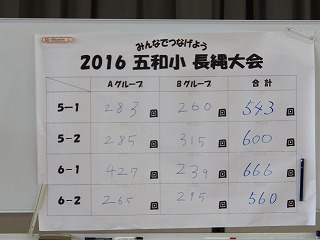 みんなでつなげよう
2016 五和小 長縄大会
Aグループ Bグループ 合計
5-1 283 回 260 回 543 回
5-2 285 回 315 回 600 回
6-1 427 回 239 回 666 回
6-2 265 回 295 回 560 回